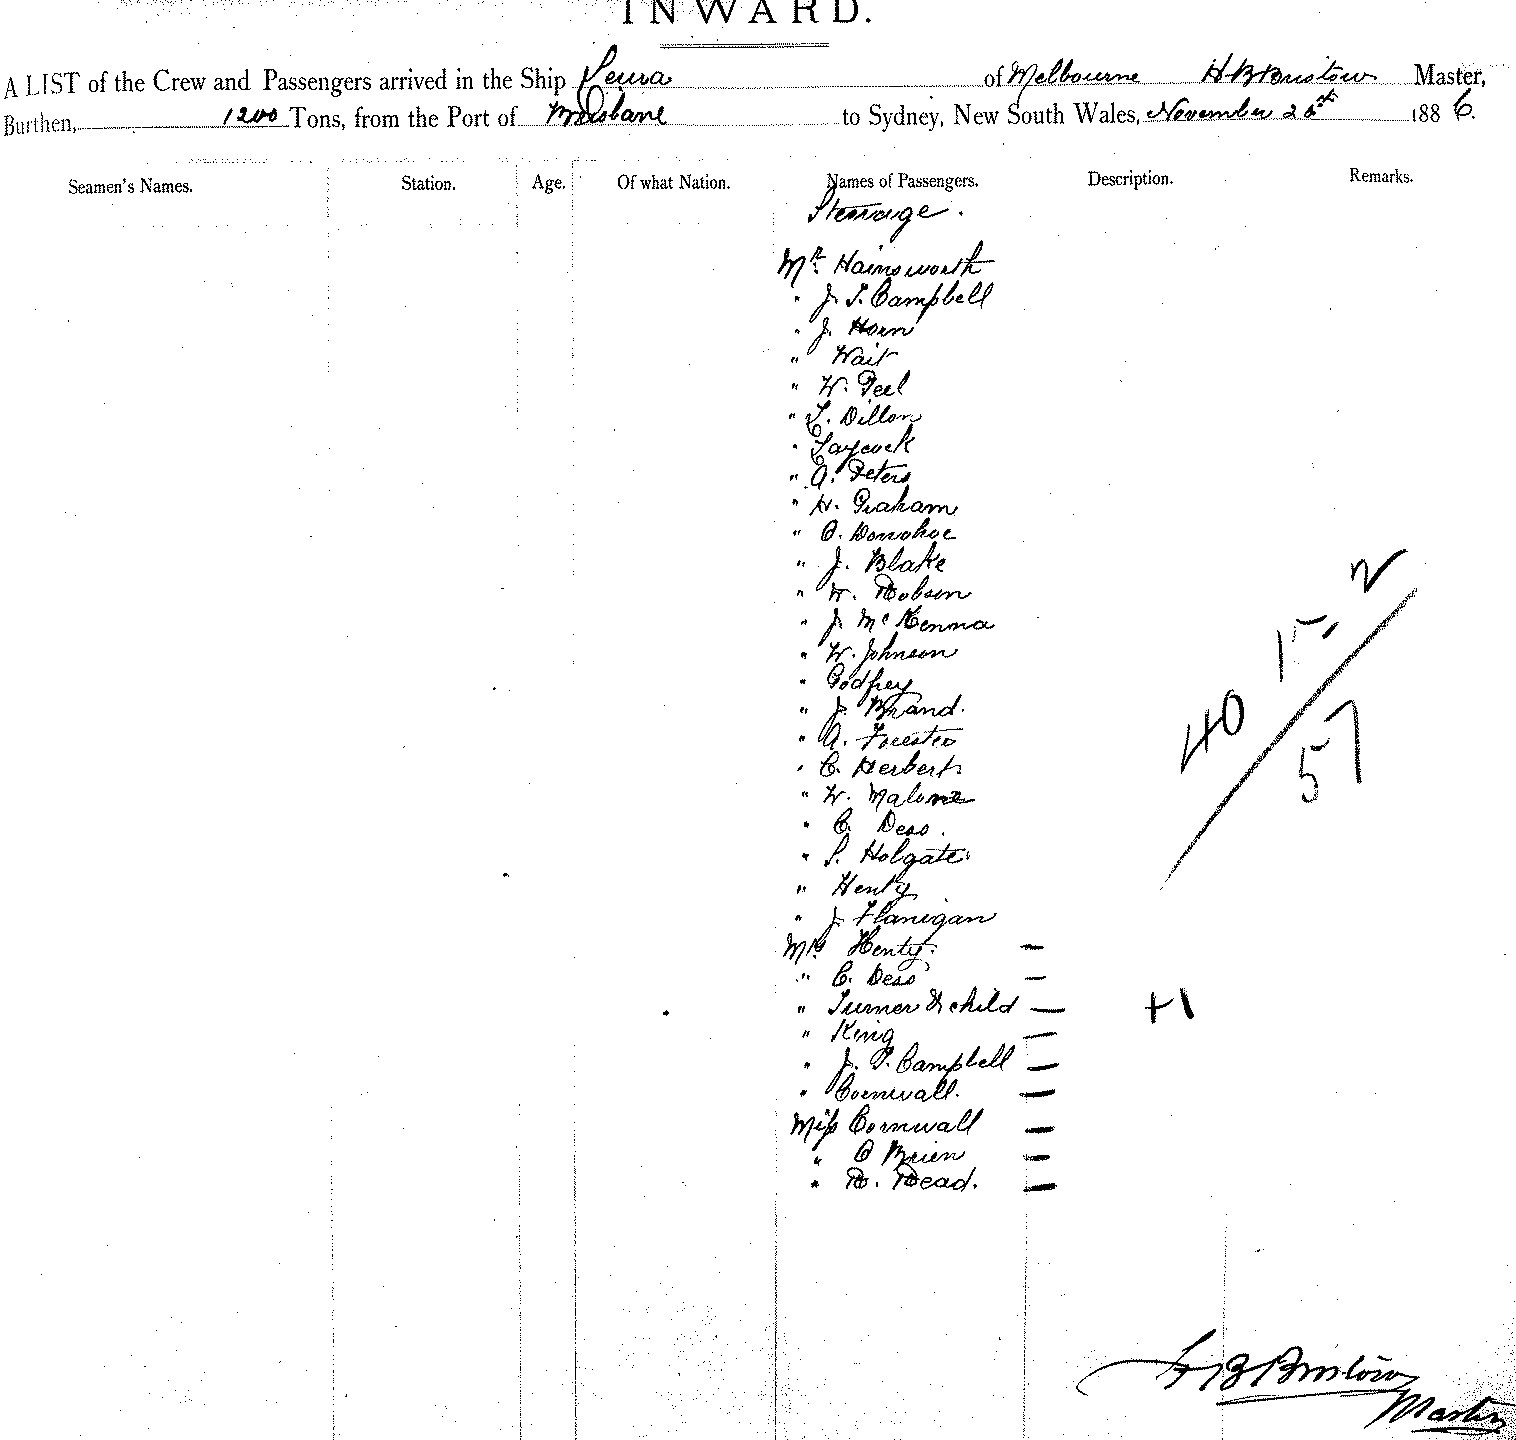 INWARD.
A LIST of the Crew and Passengers arrived in the Ship Leura of Melbourne H B Bristow Master,
Burthen, 1200 Tons, from the Port of Brisbane to Sydney, New South Wales, November 26th 1886.
Seamen's Names. Station. Age. Of what Nation. Names of Passengers. Description. Remarks.
Steerage.
Mr. Hainsworth
" J. T. Campbell
" J. Horn
" Wait
" W. Peel
" L. Dillon
" Laycock
" A. Peters
" H. Graham
" O. Donohoe
" J. Blake
" W. Robson
" J. McKenna
" W. Johnson
" Godfrey
" J. Brand.
" A. Forester
" C. Herbert
" W. Malone
" C. Dess.
" S. Holgate
" Henty
" J Flanigan
Mrs. Henty. —
" C. Dess —
" Turner & child — +1
" King —
" J. T. Campbell —
" Cornwall. —
Miss Cornwall —
" O Brien —
" R. Read. —
40 15, 2
57
H B Bristow
Master